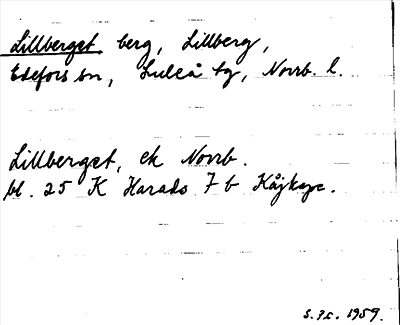 Lillberget, berg, Lillberg,
Edefors sn, Luleå tg, Norrb. l.
Lillberget, ek Norrb.
bl. 25 K Harads 7 b
1959.